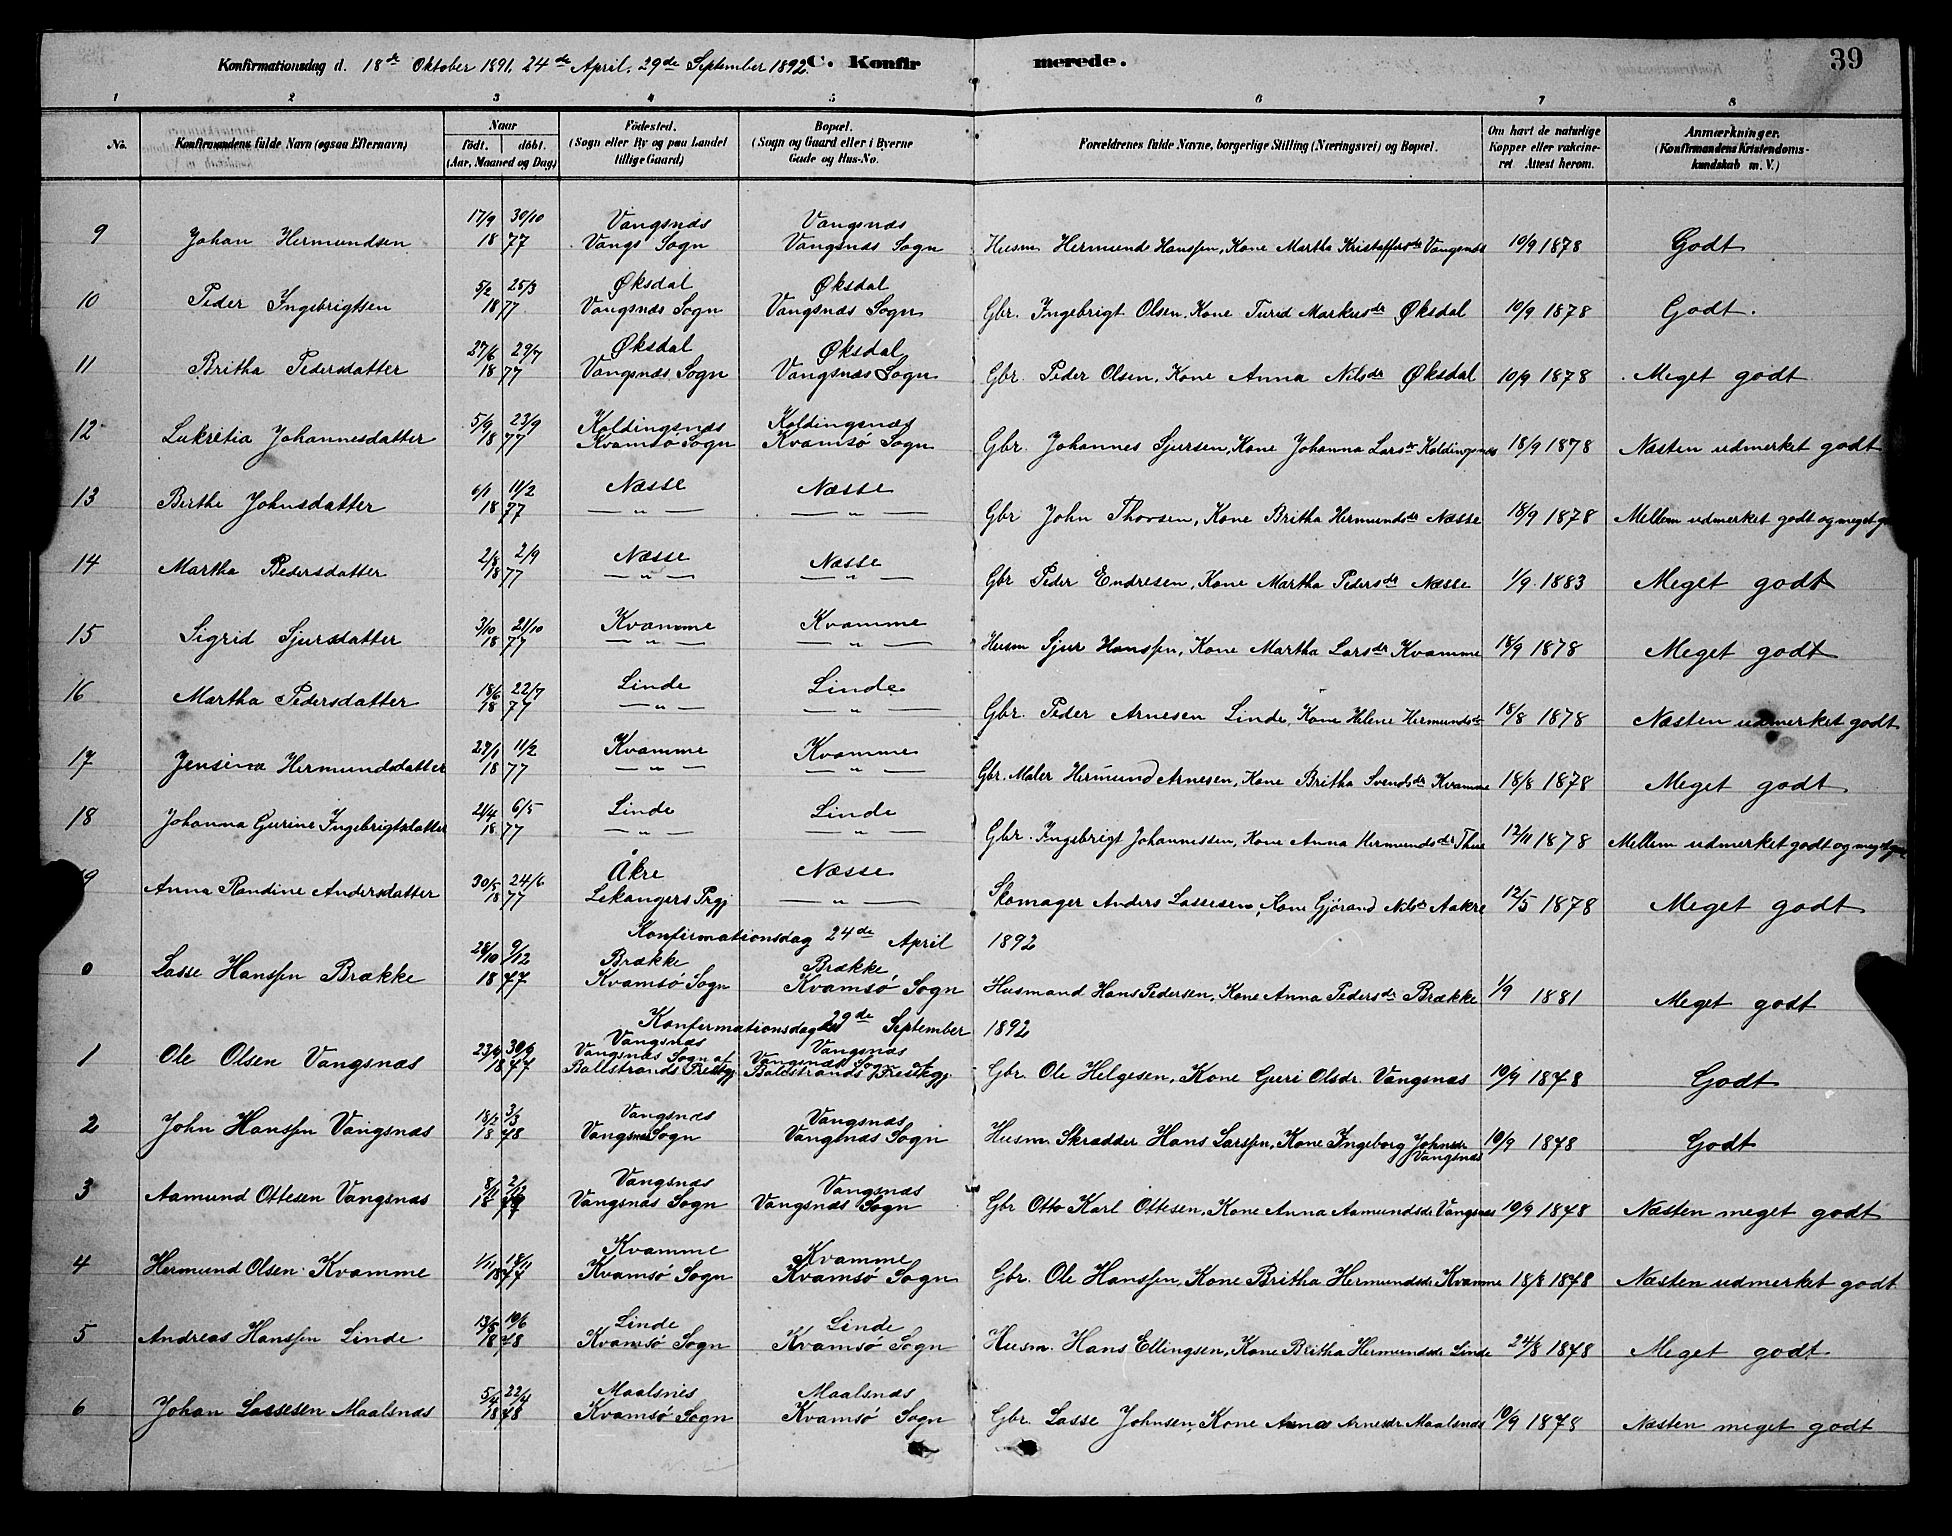 39
Konfirmationsdag d. 18de Oktober 1891, 24de April, 29de September 1892. C. Konfirmerede.
1 2 3 4 5 6 7 8
No. Konfirmandens fulde Navn (ogsaa Efternavn) Naar født. døbt. (Aar, Maaned og Dag) Fødested. (Sogn eller By og paa Landet tillige Gaard) Bopæl. (Sogn og Gaard eller i Byerne Gade og Hus-No. Forældrenes fulde Navne, borgerlige Stilling (Næringsvei) og Bopæl. Om havt de naturlige Kopper eller vakcineret. Attest herom. Anmærkninger. (Konfirmandens Kristendomskundskab m. V.)
17/9 30/10 Vangsnæs Vangsnæs
9 Johan Hermundsen 18 77 Vangs Sogn Vangsnæs Sogn Husm Hermund Hanssen, Kone Martha Kristoffersdr Vangsnæs 10/9 1878 Godt
5/2 25/3 Øksdal Øksdal
10 Peder Ingebrigtsen 1877 Vangsnæs Sogn Vangsnæs Sogn Gbr. Ingebrigt Olsen, Kone Turid Markusdr Øksdal 10/9 1878 Godt.
27/6 29/7 Øksdal Øksdal
11 Britha Pedersdatter 18 77 Vangsnæs Sogn Vangsnæs Sogn Gbr. Peder Olsen, Kone Anna Nilsdr Øksdal 10/9 1878 Meget godt
5/9 23/9 Koldingsnæs Koldingsnæs
12 Lukretia Johannesdatter 18 77 Kvamsø Sogn Kvamsø Sogn Gbr. Johannes Sjursen, Kone Johanna Larsdr Koldingsnæs 18/9 1878 Næsten udmerket godt
6/1 11/2 Næsse Næsse
13 Birthe Johnsdatter 18 77 — " — — " — Gbr John Thorsen, Kone Britha Hermundsdr Næsse 18/9 1878 Mellem udmerket godt og meget
2/8 2/9 Næsse Næsse
14 Martha Pedersdatter 18 77 — " — — " — Gbr Peder Endresen, Kone Martha Pedersdr Næsse 1/9 1883 Meget godt
3/10 21/10 Kvamme Kvamme
15 Sigrid Sjursdatter 18 77 — " — — " — Husm Sjur Hanssen, Kone Martha Larsdr Kvamme 18/9 1878 Meget godt
18/6 22/7 Linde Linde
16 Martha Pedersdatter 18 77 — " — — " — Gbr. Peder Arnesen Linde, Kone Helene Hermundsdr 18/8 1878 Næsten udmerket godt
27/1 11/2 Kvamme Kvamme
17 Jensina Hermundsdatter 18 77 — " — — " — Gbr. Maler Hermund Arnesen, Kone Britha Svendsdr Kvamme 18/8 1878 Meget godt
21/4 6/5 Linde Linde
18 Johanna Gurine Ingebrigtsdatter 18 77 — " — — " — Gbr. Ingebrigt Johannessen, Kone Anna Hermundsdr Thue 12/11 1878 Mellem udmerket godt og meget
30/5 24/6 Åkre Næsse
9 Anna Randine Andersdatter 18 77 Lekangers Prgj — " — Skomager Anders Lassesen, Kone Gjørand Nilsdr Aakre 12/5 1878 Meget godt
Konfirmationsdag 24de April 1892
28/10 9/12 Brække Brække
0 Lasse Hanssen Brække 18 77 Kvamsø Sogn Kvamsø Sogn Husmand Hans Pedersen, Kone Anna Pedersdr Brække 1/9 1881 Meget godt
Konfirmationsdag 29de September 1892
23/6 30/6 Vangsnæs Vangsnæs
1 Ole Olsen Vangsnæs 18 77 Vangsnæs Sogn af Balestrands Prestegj Vangsnæs Sogn af Balestrands Prestegj. Gbr. Ole Helgesen, Kone Guri Olsdr. Vangsnæs 10/9 1878 Godt
18/2 3/3 Vangsnæs Vangsnæs
2 John Hanssen Vangsnæs 18 78 Vangsnæs Sogn Vangsnæs Sogn Husm. Skrædder Hans Larssen, Kone Ingeborg Johnsdr Vangsnæs 10/9 1878 Godt
8/11 2/12 Vangsnæs Vangsnæs
3 Aamund Ottesen Vangsnæs 18 77 Vangsnæs Sogn Vangsnæs Sogn Gbr Otto Karl Ottesen, Kone Anna Aamundsdr Vangsnæs 10/9 1878 Næsten meget godt
1/11 18/11 Kvamme Kvamme
4 Hermund Olsen Kvamme 1877 Kvamsø Sogn Kvamsø Sogn Gbr. Ole Hanssen, Kone Britha Hermundsdr Kvamme 18/8 1878 Næsten udmerket godt
13/5 10/6 Linde Linde
5 Andreas Hanssen Linde 18 78 Kvamsø Sogn Kvamsø Sogn Husm. Hans Ellingsen, Kone Britha Hermundsdr Linde 24/8 1878 Meget godt
5/4 22/4 Maalsnes Maalsnæs
6 Johan Lassesen Maalsnæs 1878 Kvamsø Sogn Kvamsø Sogn Gbr. Lasse Johnsen, Kone Anna Arnesdr Maalsnæs 10/9 1878 Næsten meget godt